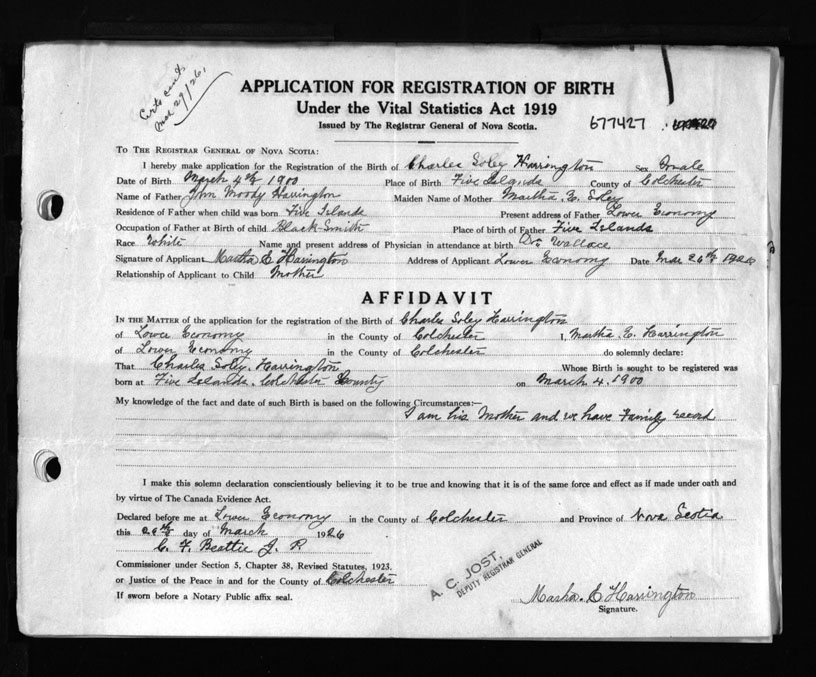 Certs sent
Mar 29/26.
APPLICATION FOR REGISTRATION OF BIRTH
Under the Vital Statistics Act 1919
Issued by The Registrar General of Nova Scotia.
677427
TO THE REGISTRAR GENERAL OF NOVA SCOTIA:
I hereby make application for the Registration of the Birth of Charles Soley Harrington
Date of Birth March 4th 1900 Place of Birth Five Islands County of Colchester
Name of Father John Moody Harrington Maiden Name of Mother Martha E. Soley
Residence of Father when child was born Five Islands Present address of Father Lower Economy
Occupation of Father at Birth of child Black-Smith Place of birth of Father Five Islands
Race White Name and present address of Physician in attendance at birth Dr. Wallace
Signature of Applicant Martha E Harrington Address of Applicant Lower Economy Date Mar 26th
Relationship of Applicant to Child Mother
AFFIDAVIT
IN THE MATTER of the application for the registration of the Birth of Charles Soley Harrington
of Lower Economy in the County of Colchester I, Martha E. Harrington
of Lower Economy in the County of Colchester do solemnly declare:
That Charles Soley Harrington Whose Birth is sought to be registered was
born at Five Islands, Colchester County on March 4. 1900
My knowledge of the fact and date of such Birth is based on the following Circumstances:—
I am his Mother and we have Family record
I make this solemn declaration conscientiously believing it to be true and knowing that it is of the same force and effect as if made under oath and
by virtue of The Canada Evidence Act.
Declared before me at Lower Economy in the County of Colchester and Province of Nova Scotia
this day of March 1926
C. F. Beattie J. P.
Commissioner under Section 5, Chapter 38, Revised Statutes, 1923.
or Justice of the Peace in and for the County of Colchester
If sworn before a Notary Public affix seal.
A. C. JOST,
DEPUTY REGISTRAR GENERAL
Martha E Harrington
Signature.